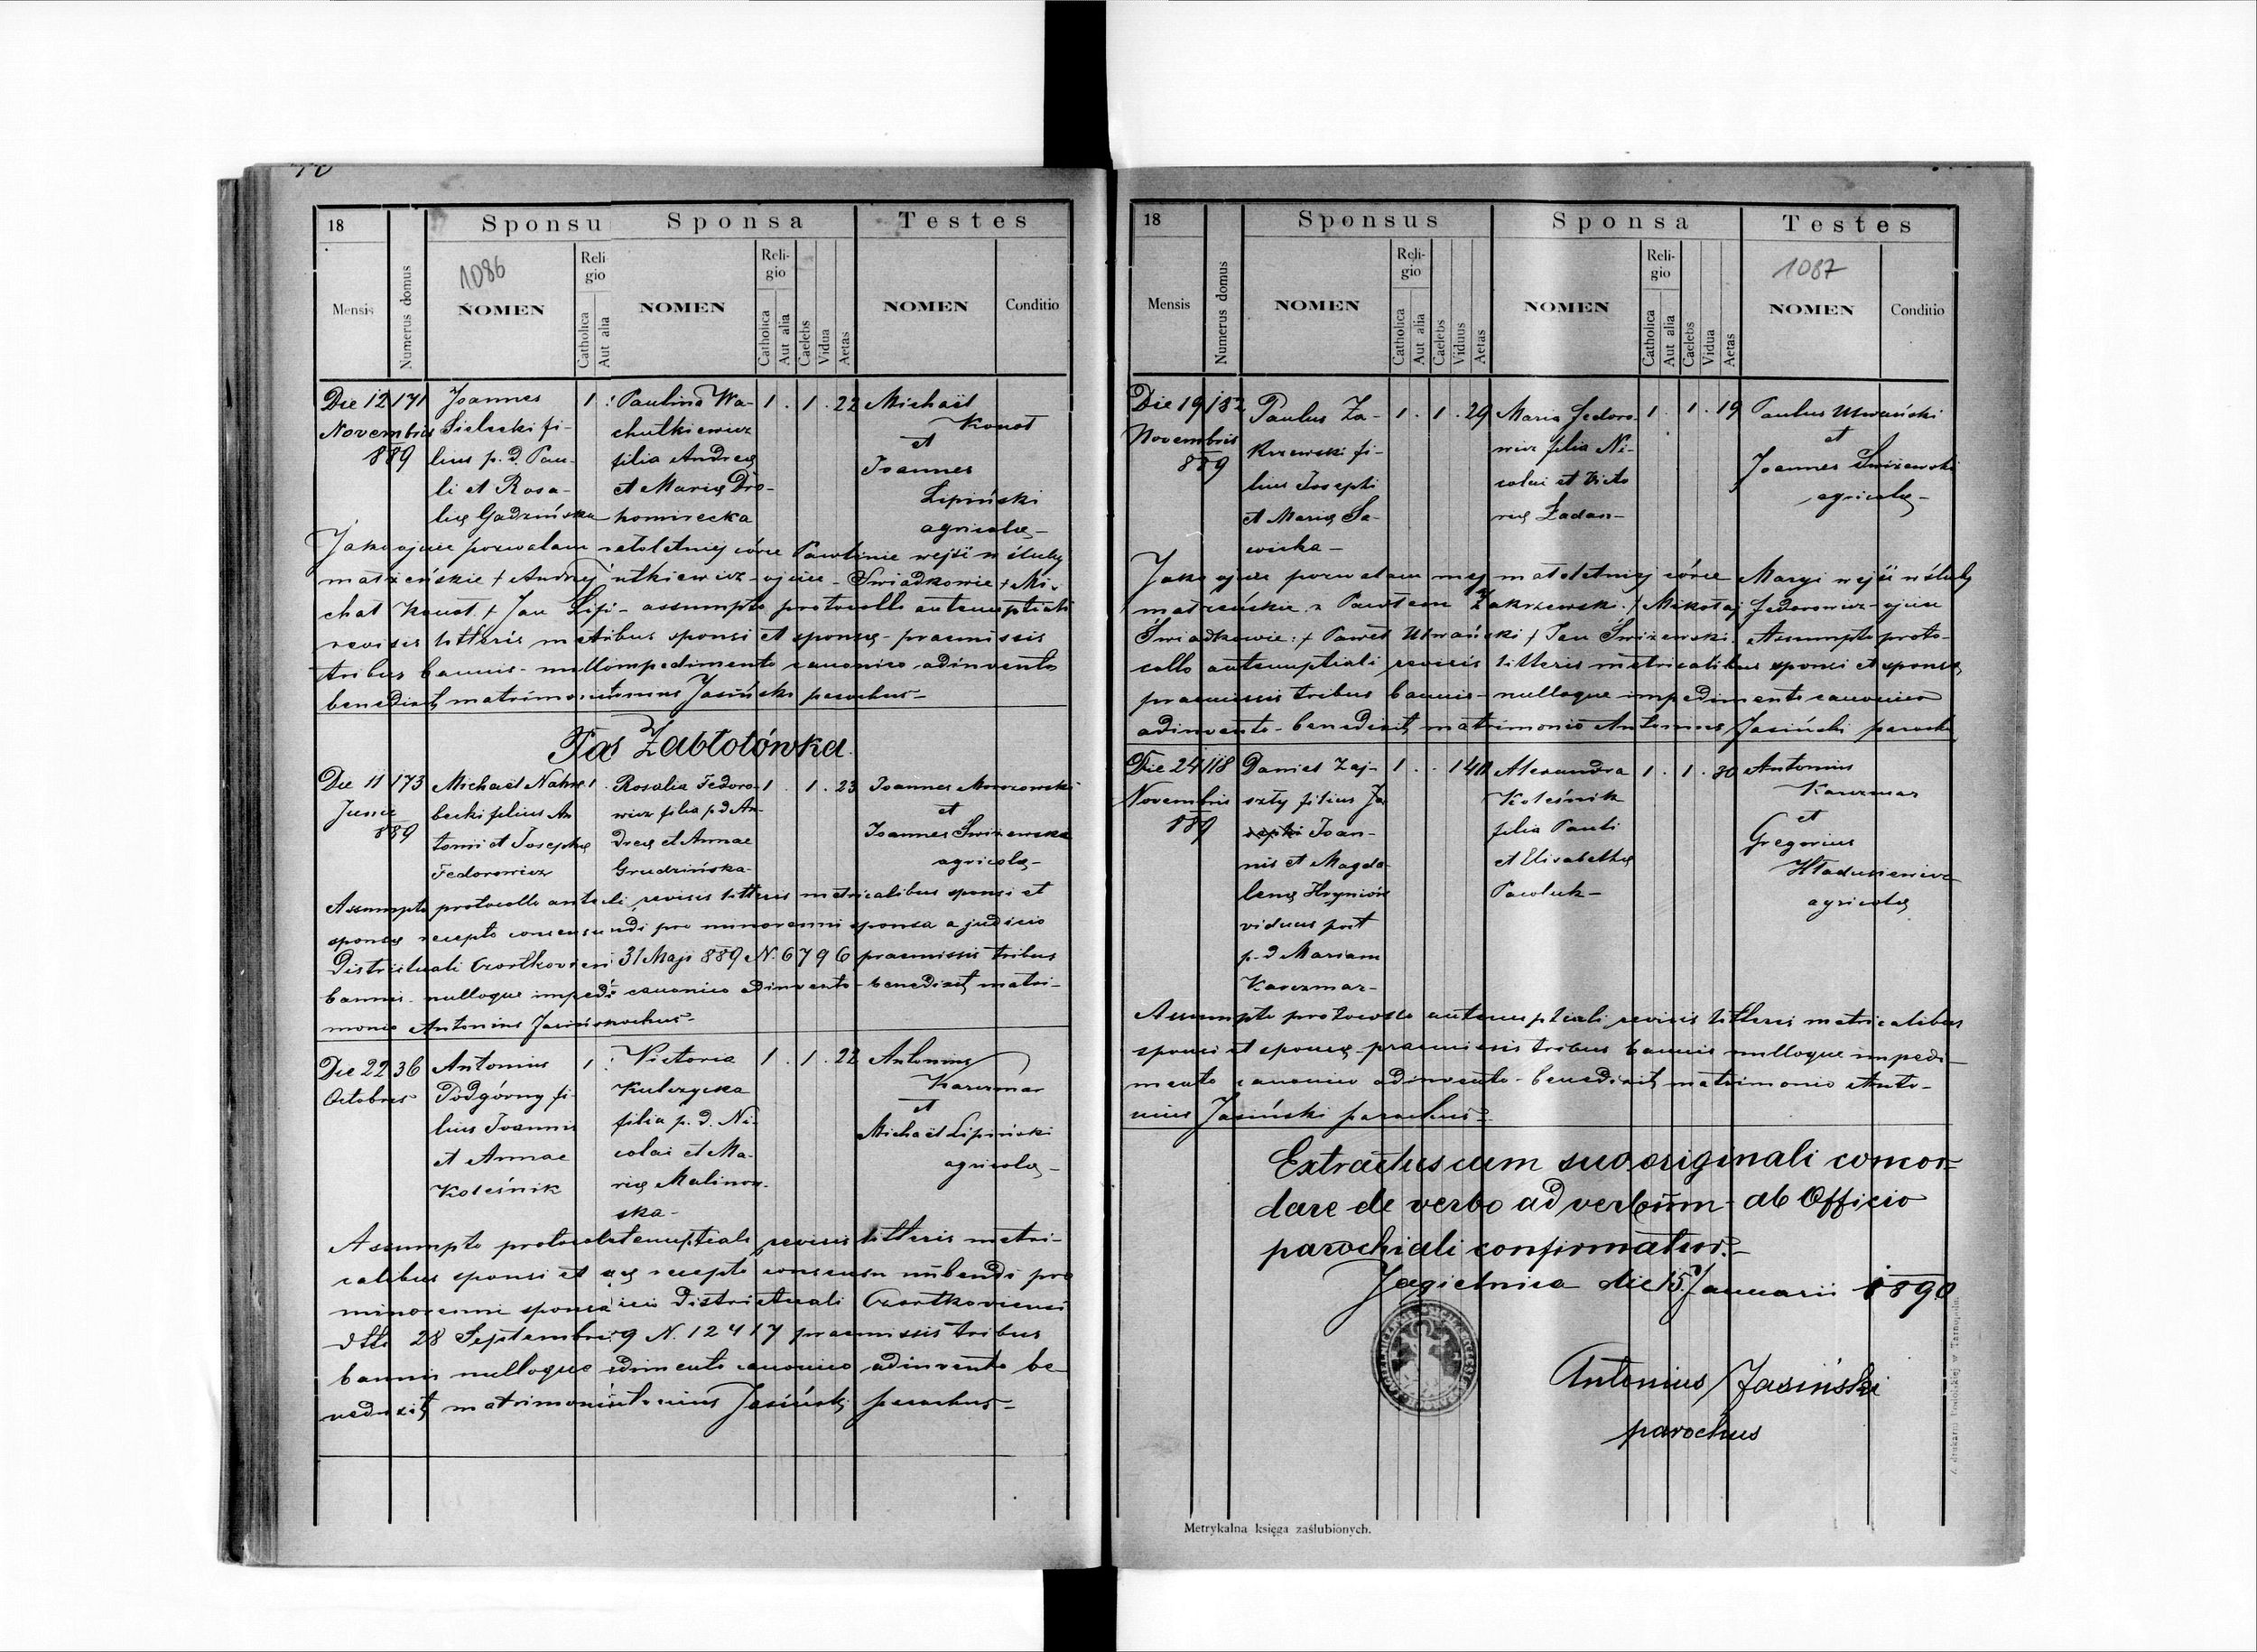 18
Sponsu
Sponsa
Testes
Mensis
Numerus domus
1086
NOMEN
Reli
gio
Catholica
Aut alia
NOMEN
Reli-
gio
Catholica
Aut alia
Caelebs
Vidua
Aetas
NOMEN
Conditio
Die 12
Novembris
889
171
Joannes
Sielecki fi-
lius p. d. Pau-
li et Rosa-
lię Gadzińska
1
Paulina Wa-
chutkiewicz
filia Andreę
et Marię Dro-
homirecka
1 . 1 . 22
Michaël
Konot
et
Joannes
Lipiński
agricolę-
Jako ojciec pozwalam
małoletniej córce Pawlinie wejść w śluby
małżeńskie + Andrzej
utkiewicz - ojciec - Świadkowie + Mi-
chał Konot + Jan Lipi- assumpto protocollo antenuptiali
revisis litteris metribus sponsi et sponsę - praemissis
tribus bannis - nulloimpedimento canonico adinvento
benedixit matrimonio
Jasiński parochus-
Pas Zabłotówka.
Die 11
Junii
889
173
Michaël Nahre
becki filius An
tonii et Josephę
Fedorowicz
1
Rosalia Fedoro-
wicz filia p.d. An-
dreę et Annae
Grudzińska-
1 . 1 . 23
Joannes Morozowski
et
Joannes Świżewski
agricolę-
Assumpto protocollo ante
li revisis litteris metricalibus sponsi et
sponsę recepto consensu
ndi pro minorenni sponsa a judicio
Districtuali Czortkovien
31 Maji 889 N. 6796 praemissis tribus
bannis nulloque impedi
canonico adinvento - benedixit matri-
monio Antonius Jasiń
rochus-
Die 22
Octobris
36
Antonius
Podgórny fi-
lius Joannis
et Annae
Koleśnik
1
Victoria
Kulczycka
filia p. d. Ni-
colai et Ma-
rię Malinow-
ska-
1 . 1 . 22
Antonius
Karczmar
et
Michaël Lipiński
agricolę-
Assumpto protocol
tenuptiali revisis litteris metri-
calibus sponsi et
ę recepto consensu nubendi pro
minorenni sponsa
icio Districtuali Czortkoviensi
dtto 28 Septembri
9 N. 12417 praemissis tribus
bannis nulloque
edimento canonico adinvento be-
nedixit matrimoni
tonius Jasiński parochus-
18
Sponsus
Sponsa
Testes
Mensis
Numerus domus
NOMEN
Reli-
gio
Catholica
Aut alia
Caelebs
Viduus
Aetas
NOMEN
Reli-
gio
Catholica
Aut alia
Caelebs
Vidua
Aetas
1087
NOMEN
Conditio
Die 19
Novembris
889
182
Paulus Za-
krzewski fi-
lius Josephi
et Marię Sa-
wicka-
1 . 1 . 29
Maria Fedoro-
wicz filia Ni-
colai et Victo
rię Żadan-
1 . 1 . 19
Paulus Utwański
et
Joannes Świżewski
agricolę-
Jako ojciec pozwalam mej małoletniej córce Maryi wejść w śluby
małżeńskie z Pawłem Zakrzewski. + Mikołaj Fedorowicz - ojciec
Świadkowie: + Paweł Utwański + Jan Świżewski. Assumpto proto-
collo antenuptiali revisis litteris metricalibus sponsi et sponsę
praemissis tribus bannis - nulloque impedimento canonico
adinvento - benedixit matrimonio Antonius Jasiński paroch
Die 24
Novembris
889
118
Daniel Zaj-
szły filius Jo
sephi Joan-
nis et Magda
lenę Hryniów
viduus post
p. d. Mariam
Karczmar-
1 . . 1 40
Alexandra
Koleśnik
filia Pauli
et Elisabethę
Pawluk-
1 . 1 . 30
Antonius
Karczmar
et
Gregorius
Hładuniewicz
agricolę
Assumpto protocollo antenuptiali revisis litteris metricalibus
sponsi et sponsę praemissis tribus bannis nulloque impedi-
mento canonico adinvento - benedixit matrimonio Anto-
nius Jasiński parochus-
Extractus cum suo originali concor-
dare de verbo ad verbum - ab Officio
parochiali confirmatur.-
Jagielnica die 15 Januarii 1890
Antonius Jasiński
parochus
Metrykalna księga zaślubionych.
Z drukarni Podolskiej w Tarnopolu.